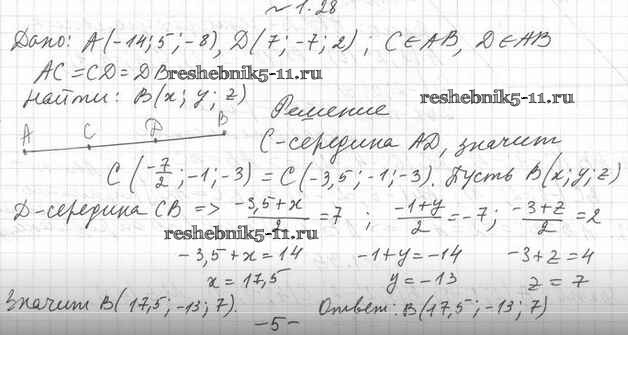 № 1.28
Дано: A(-14; 5; -8), D(7; -7; 2); C∈AB, D∈AB
AC = CD = DB
reshebnik5-11.ru
Найти: B(x; y; z)
reshebnik5-11.ru
Решение
A C D B
C-середина AD, значит
C(-7/2; -1; -3) = C(-3,5; -1; -3). Пусть B(x; y; z)
D-середина CB => (-3,5+x)/2 = 7; (-1+y)/2 = -7; (-3+z)/2 = 2
reshebnik5-11.ru
-3,5+x = 14 -1+y = -14 -3+z = 4
x = 17,5 y = -13 z = 7
Значит B(17,5; -13; 7). Ответ: B(17,5; -13; 7)
-5-